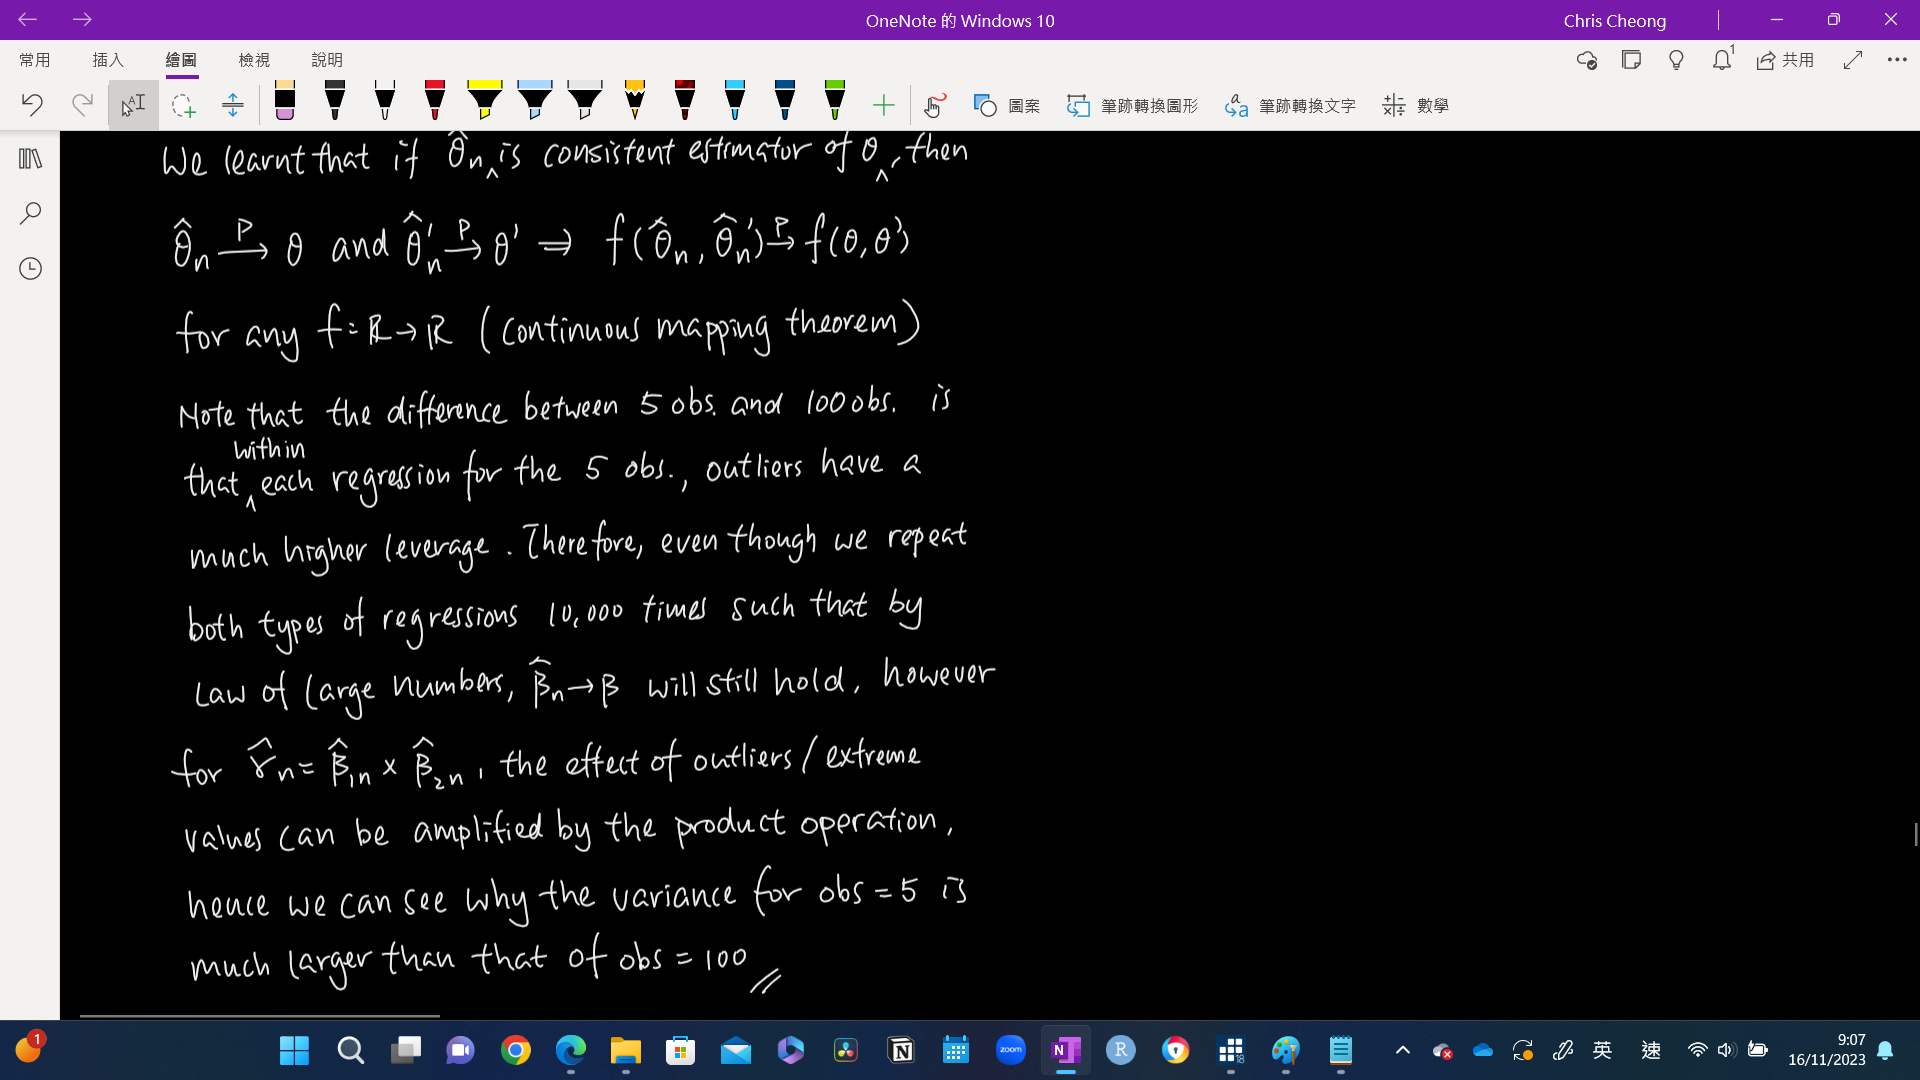 OneNote 的 Windows 10
Chris Cheong
常用 插入 繪圖 檢視 說明
1
共用
圖案 筆跡轉換圖形 筆跡轉換文字 數學
We learnt that if θ̂n ^ is consistent estimator of θ ^, then
θ̂n →ᴾ θ and θ̂n' →ᴾ θ' ⇒ f(θ̂n, θ̂n') →ᴾ f(θ, θ')
for any f: ℝ → ℝ (continuous mapping theorem)
Note that the difference between 5 obs. and 100 obs. is
within
that ^ each regression for the 5 obs., outliers have a
much higher leverage. Therefore, even though we repeat
both types of regressions 10,000 times such that by
Law of Large Numbers, β̂n → β will still hold, however
for γ̂n = β̂1n × β̂2n, the effect of outliers / extreme
values can be amplified by the product operation,
hence we can see why the variance for obs = 5 is
much larger than that of obs = 100 //
1
zoom
N
R
18
英
速
9:07
16/11/2023